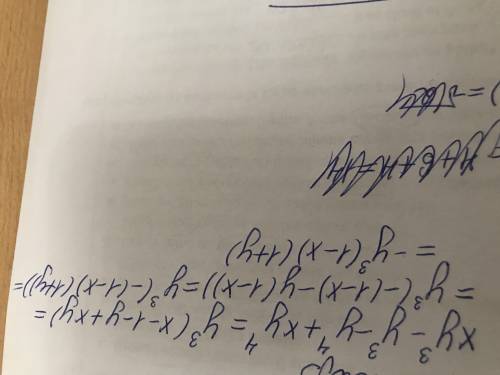 xy³-y³-y⁴+xy⁴=y³(x-1-y+xy)=
=y³(-(1-x)-y(1-x))=y³(-(1-x)(1+y))=
=-y³(1-x)(1+y)